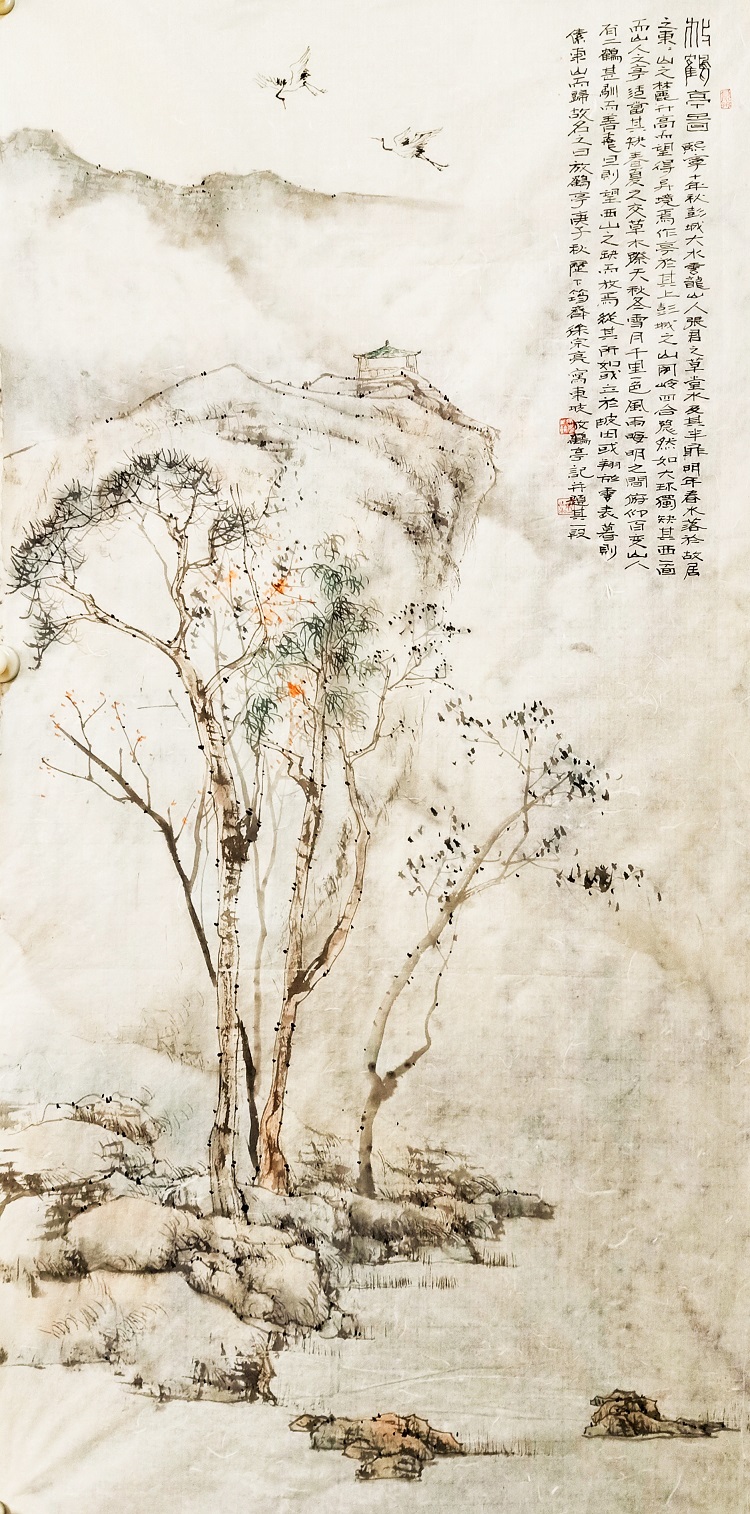 放鶴亭圖 熙寧十年秋彭城大水雲龍山人張君之草堂水及其半扉明年春水落於故居
之東〻山之麓升高而望得異境焉作亭於其上彭城之山岡嶺四合隱然如大環獨缺其西一面
而山人之亭適當其缺春夏之交草木際天秋冬雪月千里一色風雨晦明之間俯仰百變山人
有二鶴甚馴而善飛旦則望西山之缺而放焉縱其所如或立於陂田或翔於雲表暮則
傃東山而歸故名之曰放鶴亭庚子秋歷下筠齋徐宗亮寫東坡放鶴亭記并題其一段